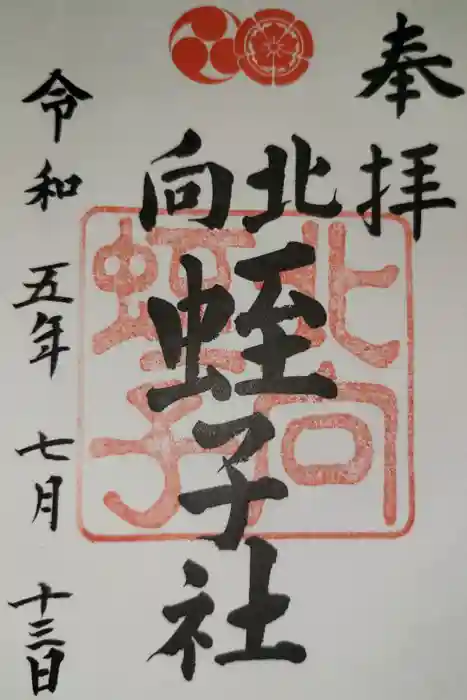 奉拝
北向
蛭子社
北向
蛭子
令和五年七月十三日